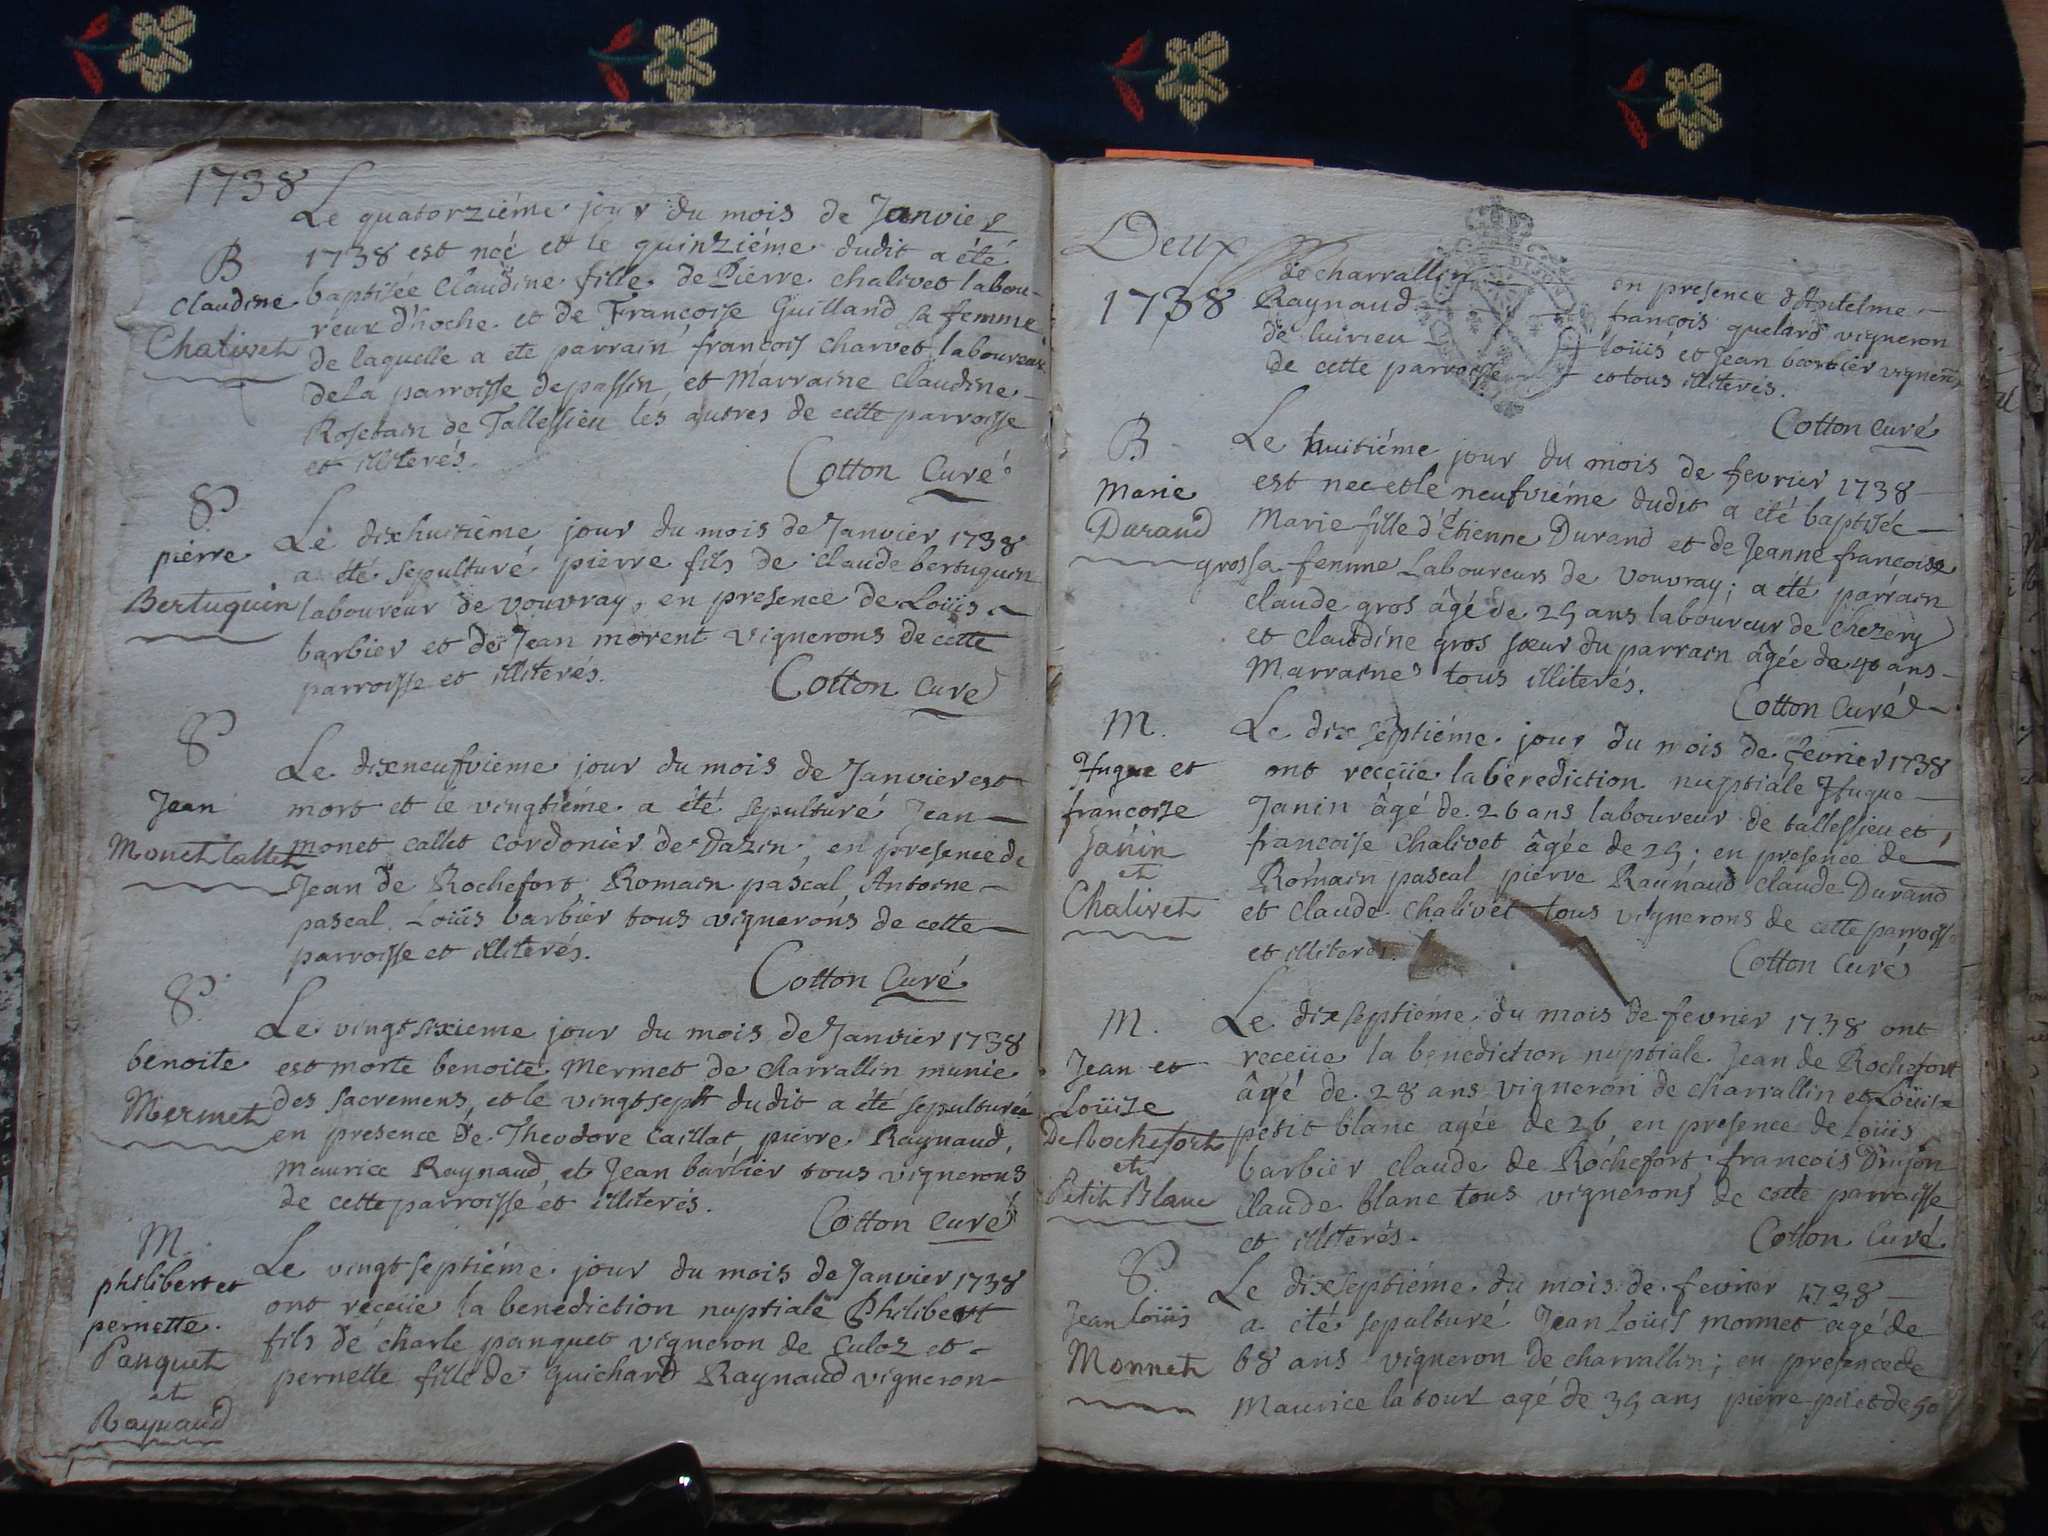 1738
Le quatorziéme jour du mois de Janvier
B
1738 est neé et le quinziéme dudit a été
Claudine
baptisée Claudine fille de Pierre chalivet labou-
Chalivet
reur d'hoche et de Françoise Guilland sa femme
de laquelle a eté parrain françois charvet laboureur
de la parroisse de passin et Marraine Claudine
Rosetain de Tallessieu les autres de cette parroisse
et illiterés.
Cotton Curé
S
pierre
Bertuquin
Le dixhuitième jour du mois de Janvier 1738
a été sepulturé pierre fils de Claude bertuquin
laboureur de vouvray, en presence de Loüis
barbier et de Jean morent vignerons de cette
parroisse et illiterés.
Cotton Curé
S
Jean
Monet Callet
Le dixneufvieme jour du mois de Janvier est
mort et le vingtiéme a été sepulturé Jean
monet callet cordonier de Dazin, en presence de
Jean de Rochefort Romain pascal Antoine
pascal Loüis barbier tous vignerons de cette
parroisse et illiterés.
Cotton Curé
S
benoite
Mermet
Le vingt sixieme jour du mois de Janvier 1738
est morte benoite Mermet de charrallin munie
des sacremens, et le vingtsept dudit a été sepulturée
en presence de Theodore Caillat, pierre Raynaud,
Maurice Raynaud, et Jean barbier tous vignerons
de cette parroisse et illiterés.
Cotton Curé
M.
philibert et
pernette
Panquet
et
Raynaud
Le vingt septiéme jour du mois de Janvier 1738
ont receüe la benediction nuptiale Philibert
fils de charle panquet vigneron de Culoz et
pernette fille de guichard Raynaud vigneron
Deux
1738
de charrallin
Raynaud
de luirieu
de cette parroisse
en presence d'Antelme
françois quelard vigneron
Loüis et Jean barbier vigneron
et tous illiterés.
Cotton Curé
B
Marie
Durand
Le huitiéme jour du mois de fevrier 1738
est neé et le neufviéme dudit a été baptisée
Marie fille d'Étienne Durand et de Jeanne françoise
gros sa femme Laboureurs de vouvray; a été parrain
claude gros âgé de 25 ans laboureur de Chezery
et claudine gros sœur du parrain âgée de 40 ans
Marraine tous illiterés.
Cotton Curé
M.
Hugue et
francoise
Janin
et
Chalivet
Le dix septiéme jour du mois de fevrier 1738
ont receüe la benediction nuptiale Hugue
Janin âgé de 26 ans laboureur de tallessieu et
francoise Chalivet âgée de 25; en presence de
Romain pascal pierre Raynaud claude Durand
et claude chalivet tous vignerons de cette parroisse
et illiterés.
Cotton Curé
M.
Jean et
Loüise
De Rochefort
et
Petit Blanc
Le dixseptiéme du mois de fevrier 1738 ont
receüe la benediction nuptiale Jean de Rochefort
âgé de 28 ans vigneron de charrallin et Loüise
petit blanc agée de 26 en presence de Loüis
barbier claude de Rochefort francois Drujon
claude Blanc tous vignerons de cette parroisse
et illiterés.
Cotton Curé
S.
Jean Loüis
Monnet
Le dixseptiéme du mois de fevrier 1738
a été sepulturé Jean Loüis monnet agé de
68 ans vigneron de charrallin; en presence de
Maurice latour agé de 35 ans pierre de 50